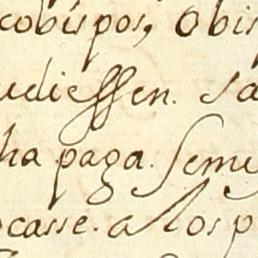 cobispos, Obis
udiessen. Sa
ha paga. Seme
ocasse. a los p